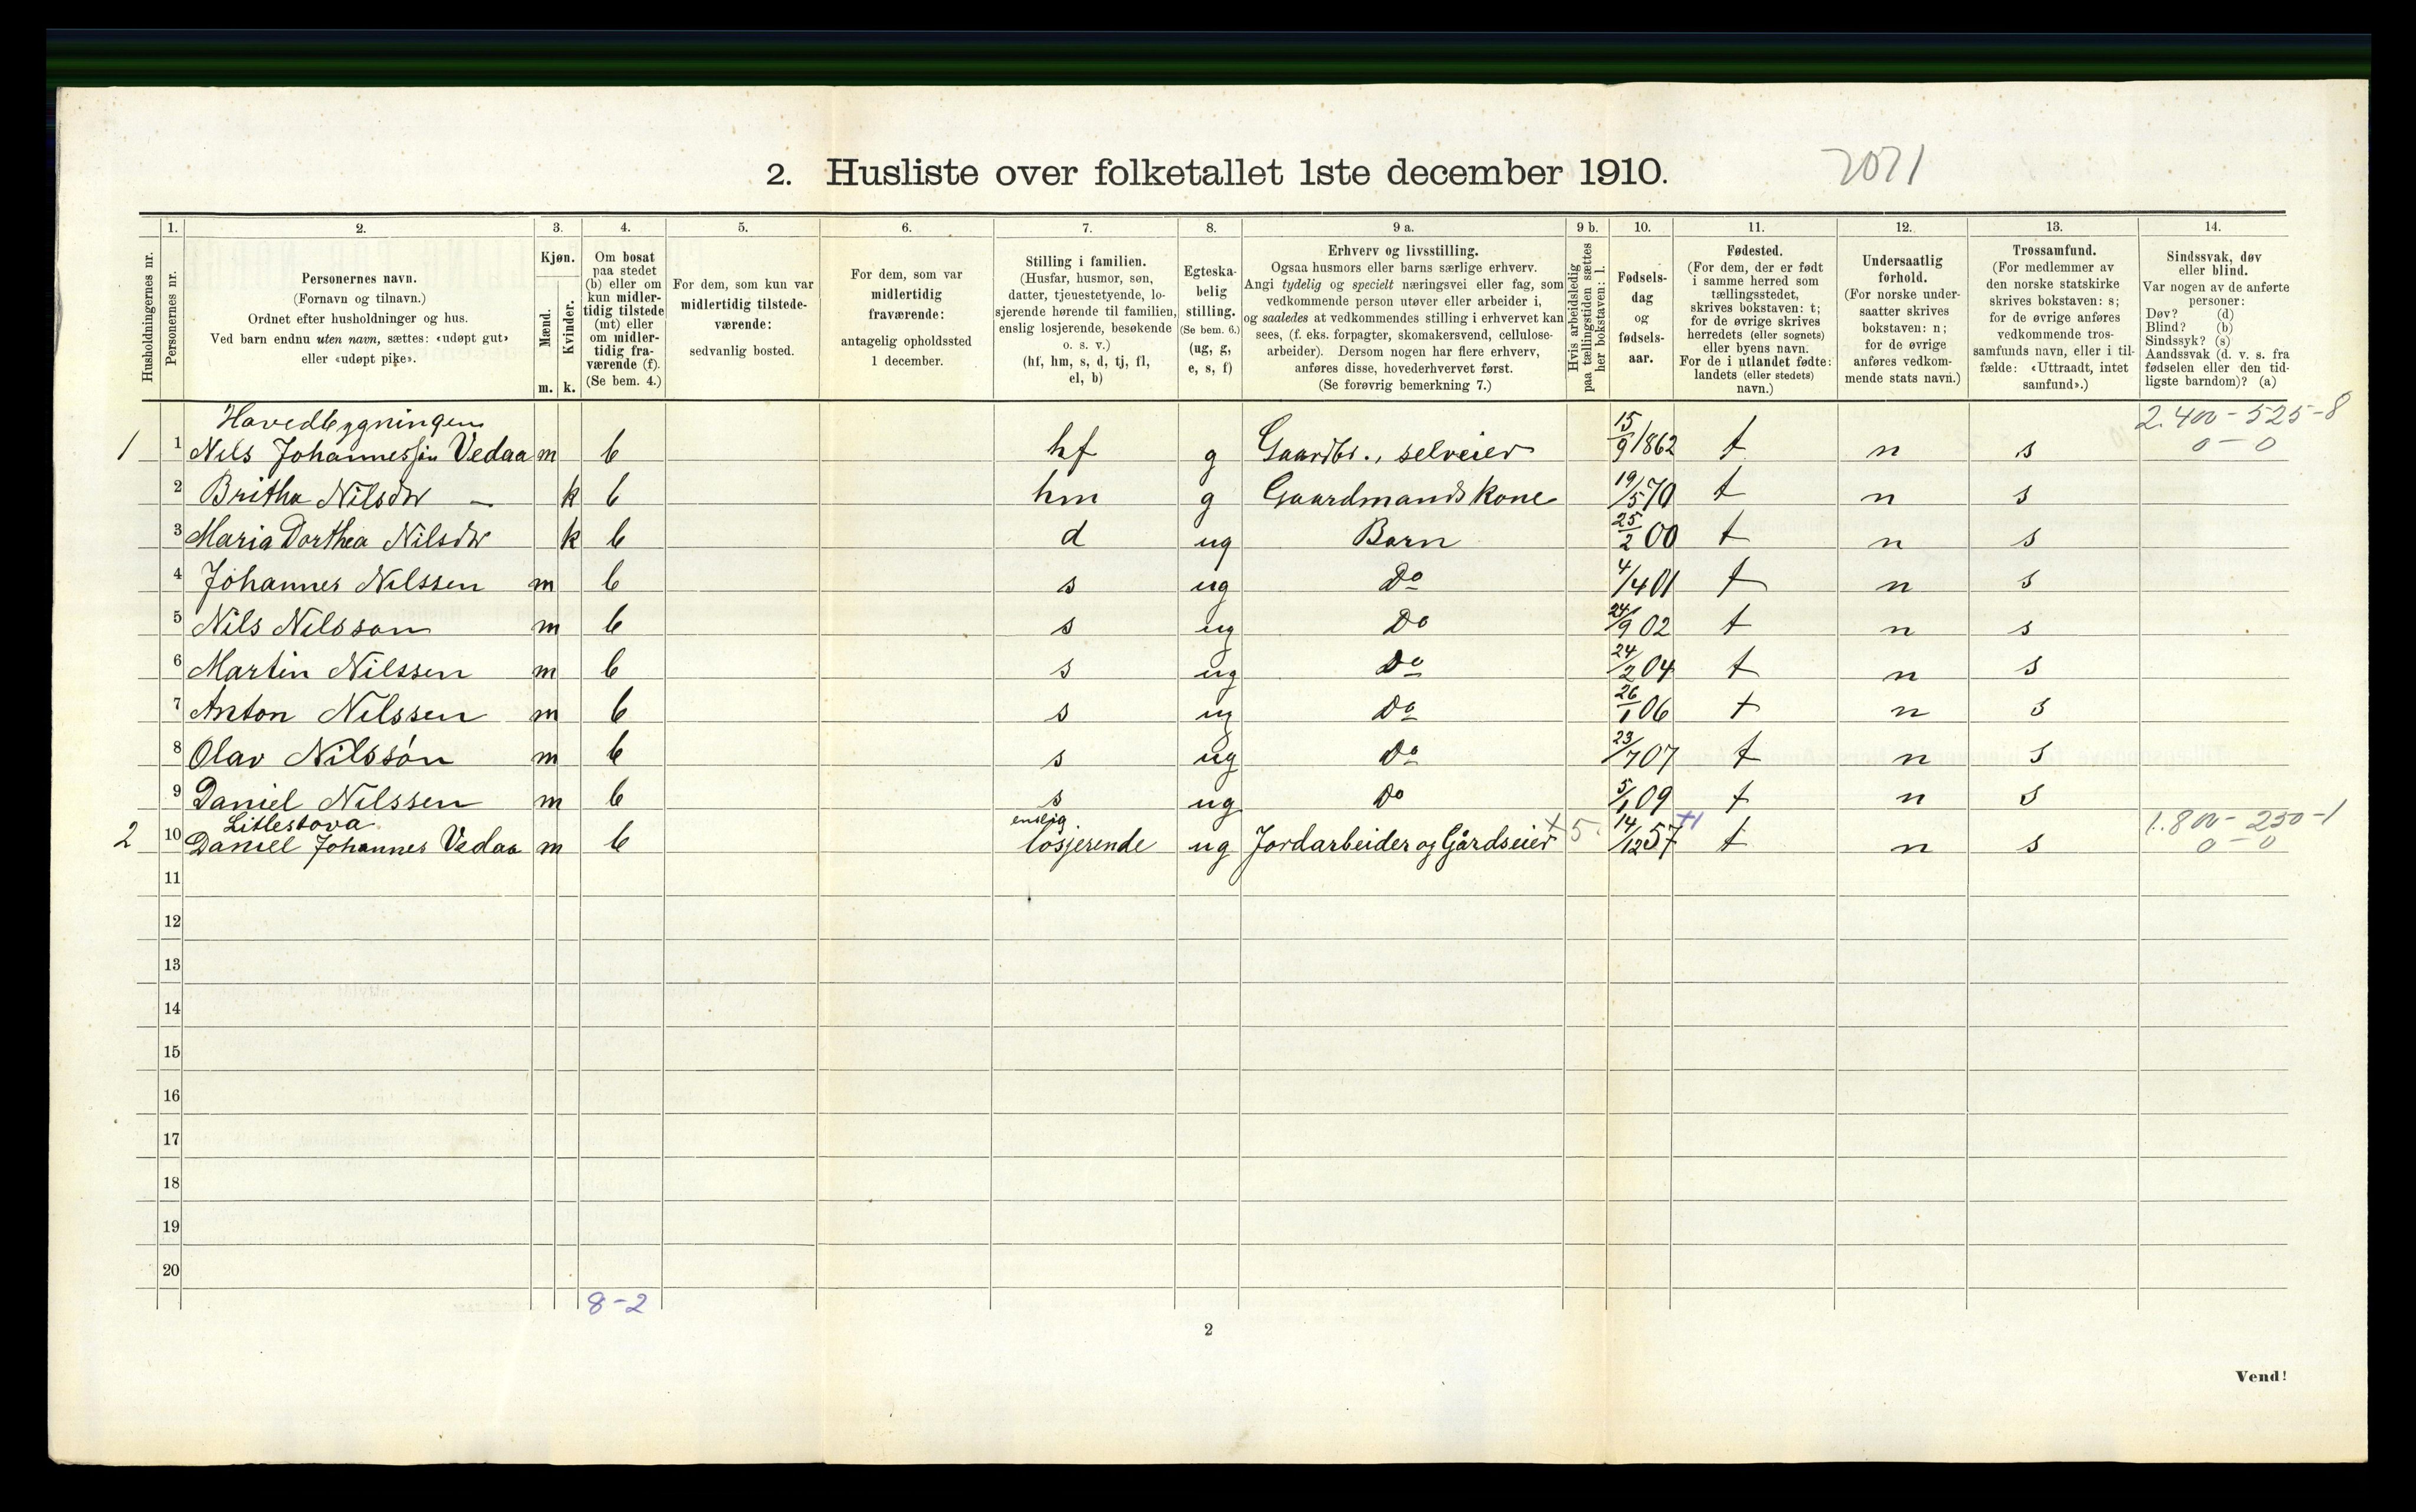 2. Husliste over folketallet 1ste december 1910.
2071
Husholdningernes nr.
1.
Personernes nr.
2.
Personernes navn.
(Fornavn og tilnavn.)
Ordnet efter husholdninger og hus.
Ved barn endnu uten navn, sættes: «udøpt gut»
eller «udøpt pike».
3.
Kjøn.
Mænd.
Kvinder.
m. k.
4.
Om bosat
paa stedet
(b) eller om
kun midler-
tidig tilstede
(mt) eller
om midler-
tidig fra-
værende (f).
(Se bem. 4.)
5.
For dem, som kun var
midlertidig tilstede-
værende:
sedvanlig bosted.
6.
For dem, som var
midlertidig
fraværende:
antagelig opholdssted
1 december.
7.
Stilling i familien.
(Husfar, husmor, søn,
datter, tjenestetyende, lo-
sjerende hørende til familien,
enslig losjerende, besøkende
o. s. v.)
(hf, hm, s, d, tj, fl,
el, b)
8.
Egteska-
belig
stilling.
(Se bem. 6.)
(ug, g,
e, s, f)
9 a.
Erhverv og livsstilling.
Ogsaa husmors eller barns særlige erhverv.
Angi tydelig og specielt næringsvei eller fag, som
vedkommende person utøver eller arbeider i,
og saaledes at vedkommendes stilling i erhvervet kan
sees, (f. eks. forpagter, skomakersvend, cellulose-
arbeider). Dersom nogen har flere erhverv,
anføres disse, hovederhvervet først.
(Se forøvrig bemerkning 7.)
9 b.
Hvis arbeidsledig
paa tællingstiden sættes
her bokstaven: l.
10.
Fødsels-
dag
og
fødsels-
aar.
11.
Fødested.
(For dem, der er født
i samme herred som
tællingsstedet,
skrives bokstaven: t;
for de øvrige skrives
herredets (eller sognets)
eller byens navn.
For de i utlandet fødte:
landets (eller stedets)
navn.)
12.
Undersaatlig
forhold.
(For norske under-
saatter skrives
bokstaven: n;
for de øvrige
anføres vedkom-
mende stats navn.)
13.
Trossamfund.
(For medlemmer av
den norske statskirke
skrives bokstaven: s;
for de øvrige anføres
vedkommende tros-
samfunds navn, eller i til-
fælde: «Uttraadt, intet
samfund».)
14.
Sindssvak, døv
eller blind.
Var nogen av de anførte
personer:
Døv? (d)
Blind? (b)
Sindssyk? (s)
Aandssvak (d. v. s. fra
fødselen eller den tid-
ligste barndom)? (a)
Hovedbygningen
2.400-525-8
1 1 Nils Johannessøn Vedaa m b hf g Gaardbr., selveier 15/9 1862 t n s 0-0
2 Britha Nilsdtr — k b hm g Gaardmands kone 19/5 70 t n s
3 Maria Dorthea Nilsdtr k b d ug Barn 25/2 00 t n s
4 Johannes Nilssen m b s ug Do 4/4 01 t n s
5 Nils Nilsson m b s ug Do 24/9 02 t n s
6 Martin Nilssen m b s ug Do 24/2 04 t n s
7 Anton Nilssen m b s ug Do 26/1 06 t n s
8 Olav Nilssón m b s ug Do 23/7 07 t n s
9 Daniel Nilssen m b s ug Do 5/1 09 t n s
Litlestova enslig 1.800-250-1
2 10 Daniel Johannes Vedaa m b losjerende ug Jordarbeider og Gårdseier x 5. 14/12 57 +1 t n s 0-0
11
12
13
14
15
16
17
18
19
20
8-2
2
Vend!